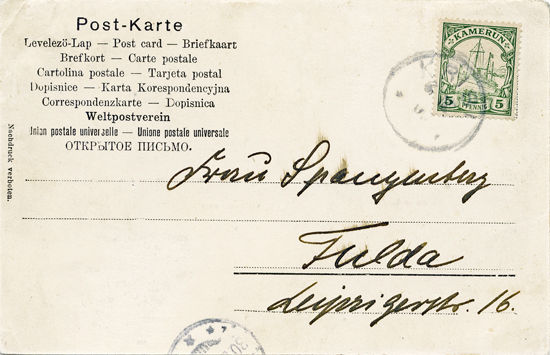 Post-Karte
Levelezö-Lap — Post card — Briefkaart
Brefkort — Carte postale
Cartolina postale — Tarjeta postal
Dopisnice — Karta Korespondencyjna
Correspondenzkarte — Dopisnica
Weltpostverein
Union postale universelle — Unione postale universale
ОТКРЫТОЕ ПИСЬМО.
Nachdruck verboten.
KAMERUN
5 PFENNIG 5
Frau Spangenberg
Fulda
Leipzigerstr. 16.